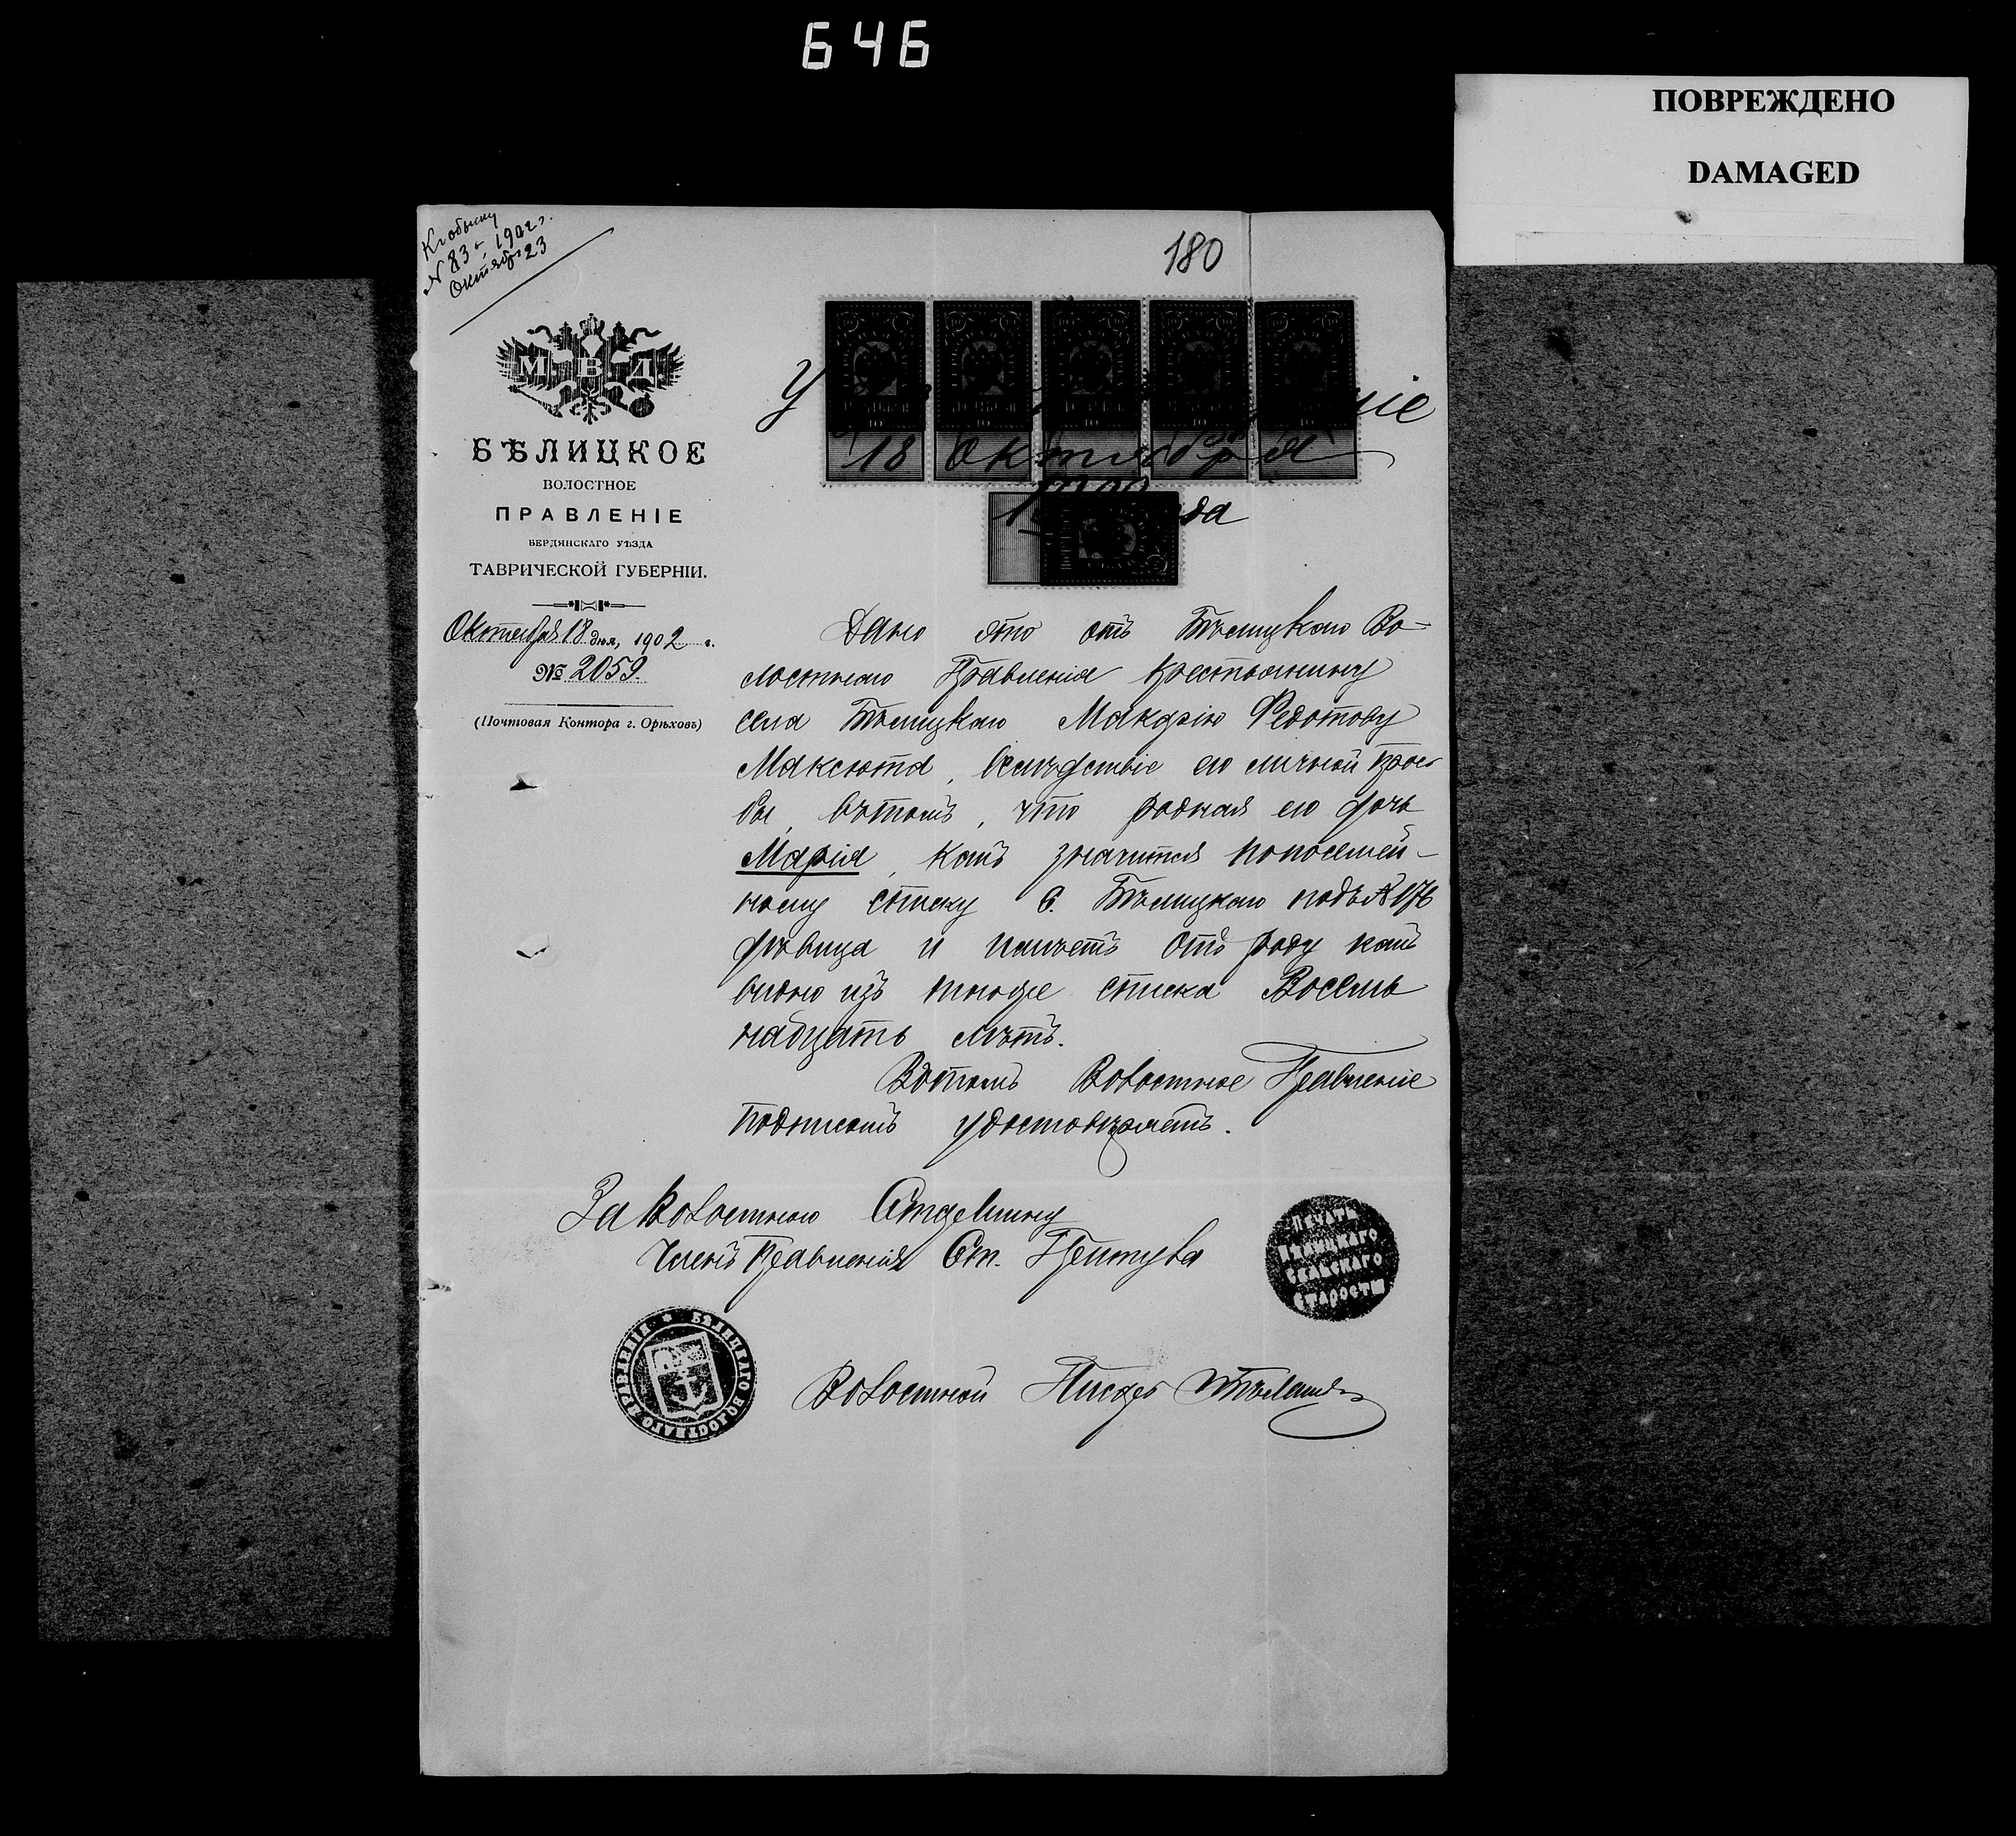 646
ПОВРЕЖДЕНО
DAMAGED
К обыску
№ 83й 1902 г.
Октября 23
180
М В Д
БѢЛИЦКОЕ
ВОЛОСТНОЕ
ПРАВЛЕНІЕ
БЕРДЯНСКАГО УѢЗДА
ТАВРИЧЕСКОЙ ГУБЕРНІИ.
Октября 18 дня, 1902 г.
№ 2059.
(Почтовая Контора г. Орѣховъ)
18 Октября
Дано это отъ Бѣлицкаго Во-
лостнаго Правленія крестьянину
села Бѣлицкаго Макарію Федотову
Максюта, вслѣдствіе его личной прось
бы, вътомъ, что родная его дочь
Марія, какъ значится попосемей-
ному списку С. Бѣлицкаго подъ № 176
дѣвица и имѣетъ отъ роду какъ
видно изъ того же списка Восемь
надцать лѣтъ.
Вътомъ Волостное Правленіе
подписомъ удостовѣряетъ.
За Волостного Старшину
Членъ Правленія Ст.
ПЕЧАТЬ
БѢЛИЦКАГО
СЕЛЬСКАГО
СТАРОСТЫ
БѢЛИЦКАГО ВОЛОСТНАГО ПРАВЛЕНІЯ
Волостной Писарь